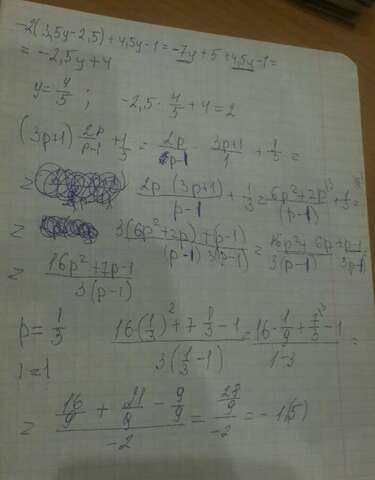 -2(3,5y-2,5)+4,5y-1=-7y+5+4,5y-1=
=-2,5y+4
y=4/5; -2,5·4/5+4=2
(3p+1) 2p/p-1 + 1/3 = 2p/p-1 · 3p+1/1 + 1/3 =
= 2p(3p+1)/p-1 + 1/3 = 6p²+2p/(p-1) + 1/3 =
= 3(6p²+2p)+(p-1)/(p-1)3(p-1) = 16p²+6p+p-1/3(p-1)
= 16p²+7p-1/3(p-1)
p=1/3 16(1/3)²+7 1/3-1/3(1/3-1) = 16·1/9+7/3-1/1-3 =
= 16/9+21/9-9/9/-2 = 28/9/-2 = -1(5)